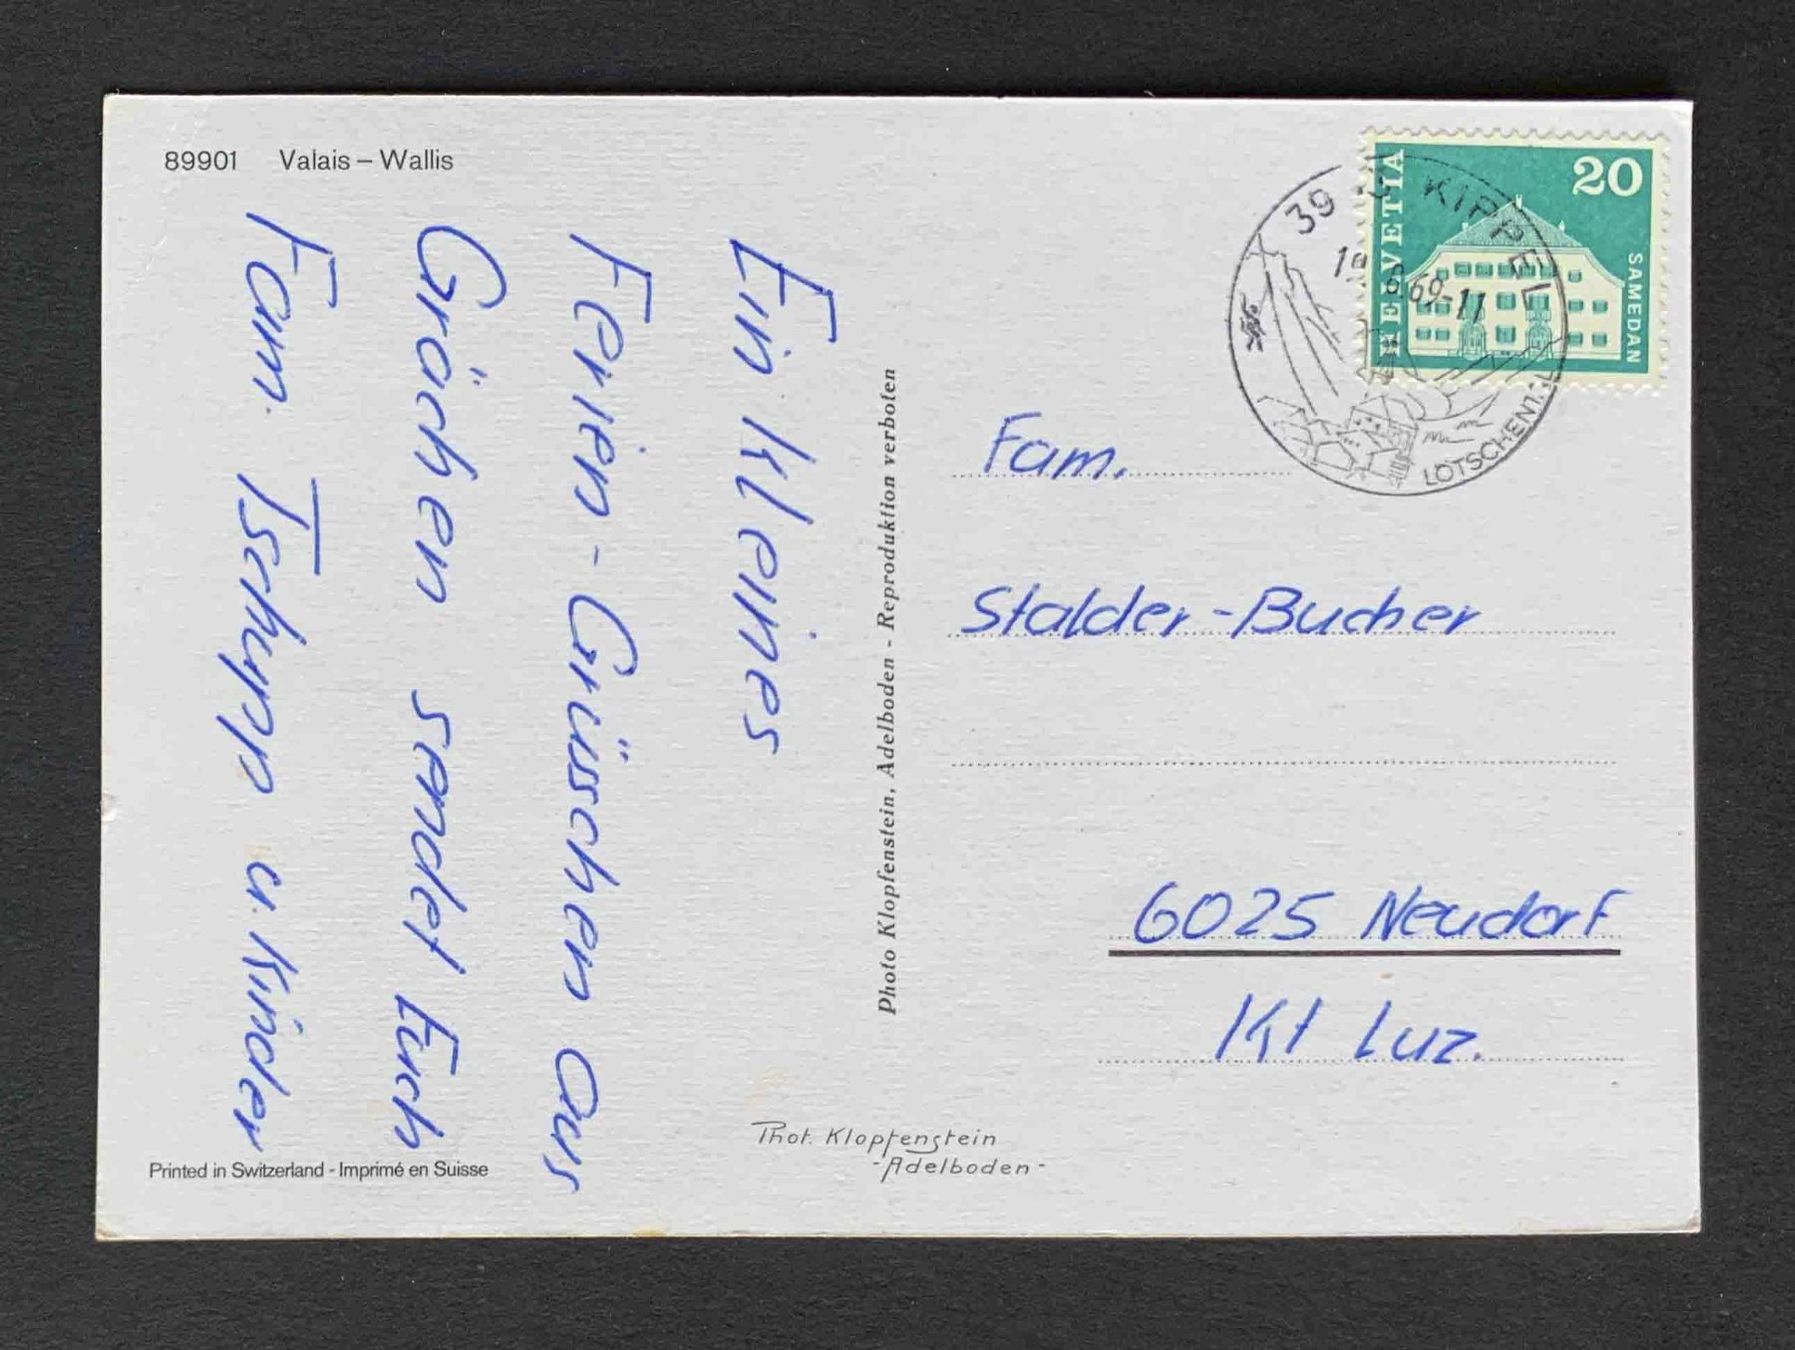 89901 Valais – Wallis
Ein kleines
Ferien-Grüsschen aus
Grächen sendet Euch
Fam. Tschupp u. Kinder
Printed in Switzerland - Imprimé en Suisse
Photo Klopfenstein, Adelboden - Reproduktion verboten
Phot. Klopfenstein
-Adelboden-
HELVETIA
20
SAMEDAN
KIPPEL
.69-11
Fam.
Stalder-Bucher
6025 Neudorf
Kt Luz.